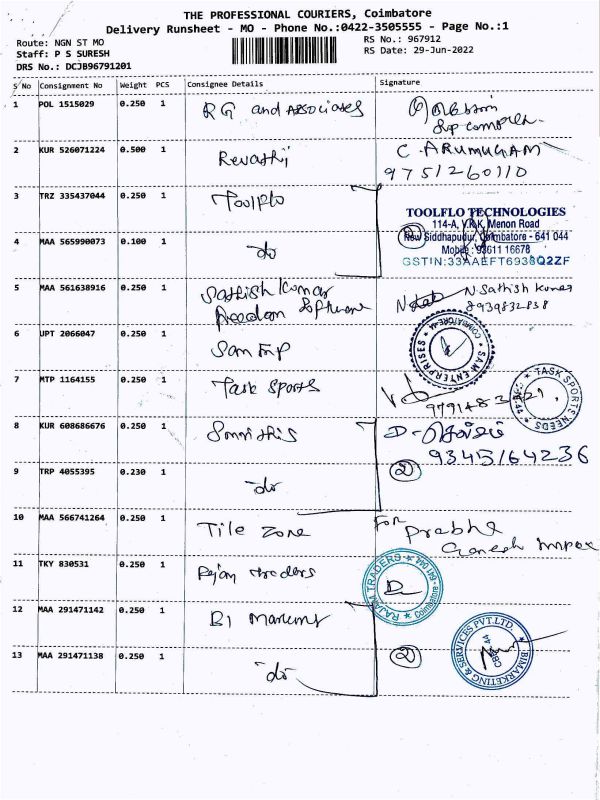 THE PROFESSIONAL COURIERS, Coimbatore
Delivery Runsheet - MO - Phone No.:0422-3505555 - Page No.:1
Route: NGN ST MO
RS No.: 967912
Staff: P S SURESH
RS Date: 29-Jun-2022
DRS No.: DCJB96791201
S No Consignment No Weight PCS Consignee Details Signature
1 POL 1515029 0.250 1 RG and Associates
2 KUR 526071224 0.500 1 Revathy C. ARUMUGAM
9751260110
3 TRZ 335437044 0.250 1 Toolflo
TOOLFLO TECHNOLOGIES
114-A, V.R.K. Menon Road
New Siddhapudur, Coimbatore - 641 044
Mobile : 93611 16678
GSTIN:33AAEFT6938Q2ZF
4 MAA 565990073 0.100 1 do
5 MAA 561638916 0.250 1 Sathish Kumar N Sathish Kumar
Freedom Software 8939832838
6 UPT 2066047 0.250 1 Sam Enp
SAM ENTERPRISES
COIMBATORE-44
7 MTP 1164155 0.250 1 Task Sports
TASK SPORTS NEEDS
8 KUR 608686676 0.250 1
9345164236
9 TRP 4055395 0.230 1 do 2
10 MAA 566741264 0.250 1 Tile Zone For Prabha
Ganesh Impex
11 TKY 830531 0.250 1 Rajam Traders
RAJAM TRADERS
Coimbatore - 641 044
12 MAA 291471142 0.250 1
13 MAA 291471138 0.250 1 do 2
BIMARKETING & SERVICES PVT.LTD.
CBE - 44